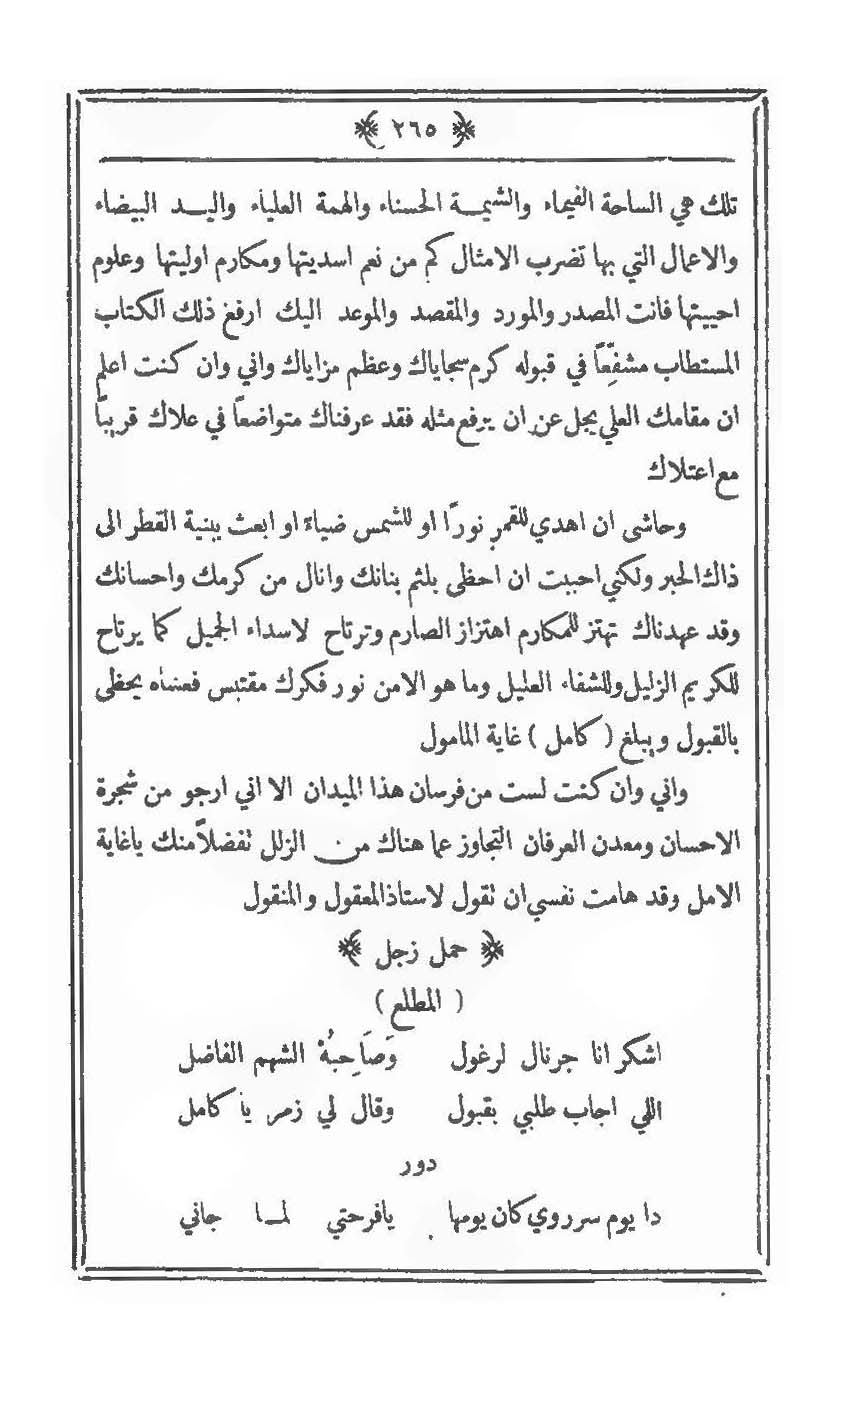 ﴿ ٢٦٥ ﴾
تلك هي الساحة الفيحاء والشيمة الحسناء والهمة العلياء واليد البيضاء
والاعمال التي بها تضرب الامثال كم من نعم اسديتها ومكارم اوليتها وعلوم
احييتها فانت المصدر والمورد والمقصد والموعد اليك ارفع ذلك الكتاب
المستطاب مشفِّعاً في قبوله كرم سجاياك وعظم مزاياك واني وان كنت اعلم
ان مقامك العلي يجل عن ان يرفع مثله فقد عرفناك متواضعاً في علاك قريباً
مع اعتلاك
وحاشى ان اهدي للقمر نورًا او للشمس ضياءً او ابعث ببنية القطر الى
ذاك الحبر ولكني احببت ان احظى بلثم بنانك وانال من كرمك واحسانك
وقد عهدناك تهتز للمكارم اهتزاز الصارم وترتاح لاسداء الجميل كما يرتاح
للكريم النزيل وللشفاء العليل وما هو الا من نور فكرك مقتبس فعساه يحظى
بالقبول ويبلغ ( كامل ) غاية المامول
واني وان كنت لست من فرسان هذا الميدان الا اني ارجو من شجرة
الاحسان ومعدن العرفان التجاوز عما هناك من الزلل تفضلاً منك ياغاية
الامل وقد هامت نفسي ان تقول لاستاذ المعقول والمنقول
﴿ حمل زجل ﴾
( المطلع )
اشكر انا جرنال لرغول وَصَاحِبُهْ الشهم الفاضل
اللي اجاب طلبي بقبول وقال لي زمر يا كامل
دور
دا يوم سرروي كان يومها يافرحتي لما جاني